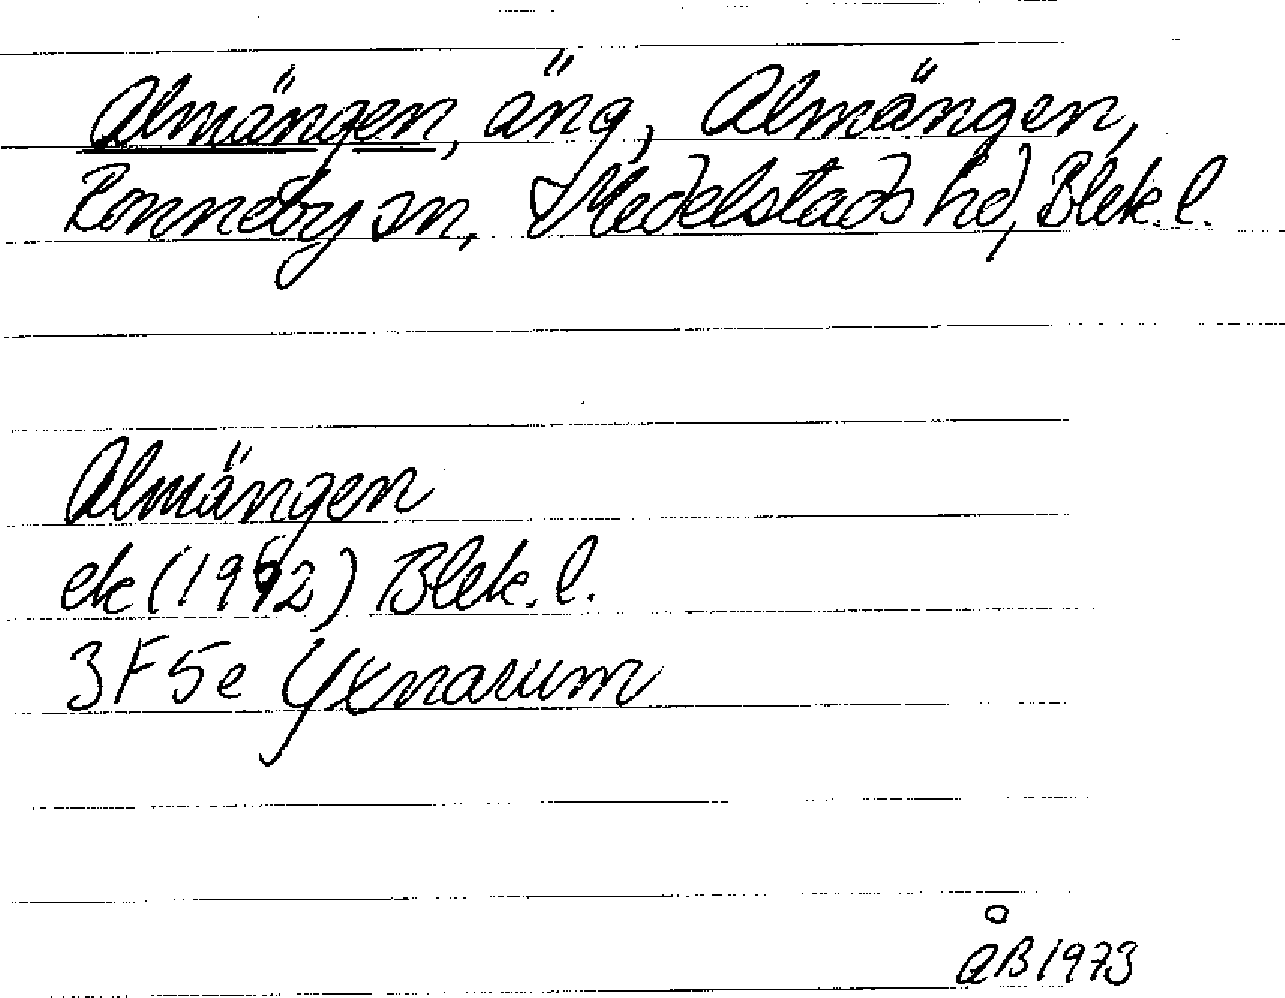 Almängen, äng, Almängen,
Ronneby sn, Medelstads hd, Blek. l.
Almängen
ek (1992) Blek. l.
3F5e Yxnarum
ÅB 1973